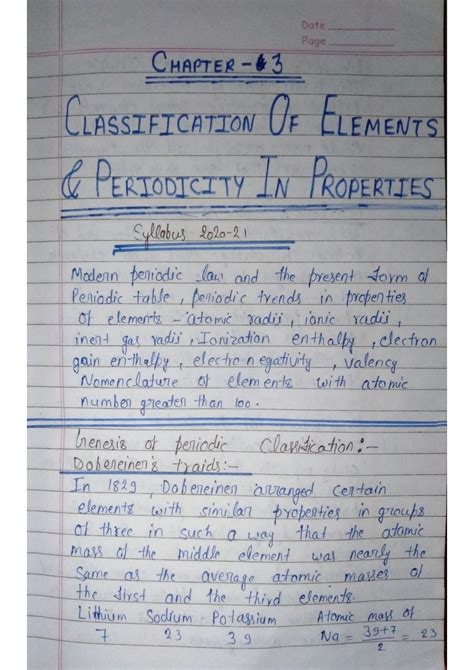 Date
Page
CHAPTER - 3
CLASSIFICATION OF ELEMENTS
& PERIODICITY IN PROPERTIES
Syllabus 2020-21
Modern periodic law and the present form of
Periodic table, periodic trends in properties
of elements - atomic radii, ionic radii,
inert gas radii, Ionization enthalpy, electron
gain enthalpy, electro negativity, valency
Nomenclature of elements with atomic
number greater than 100.
Genesis of periodic Classification:-
Dobereiner's traids:-
In 1829, Dobereiner arranged certain
elements with similar properties in groups
of three in such a way that the atomic
mass of the middle element was nearly the
same as the average atomic masses of
the first and the third elements.
Lithium Sodium Potassium Atomic mass of
7 23 39 Na = 39+7/2 = 23